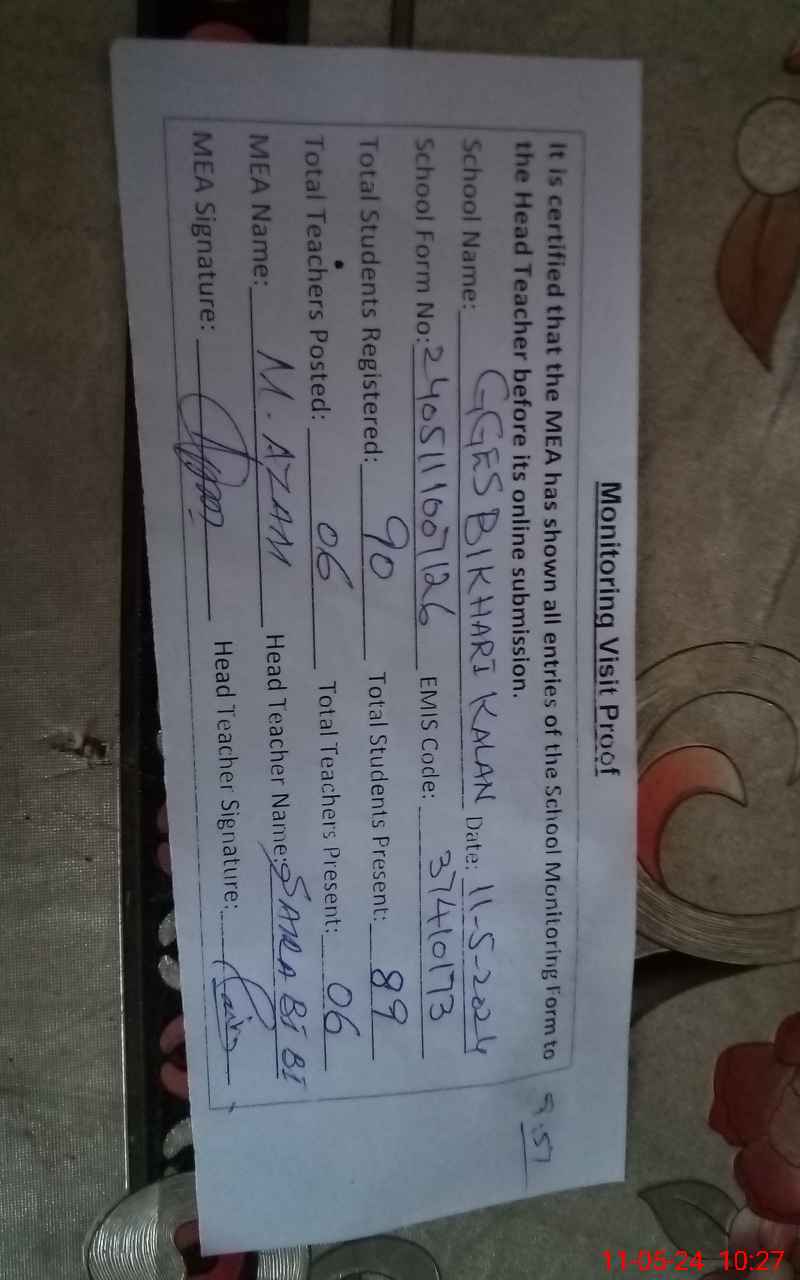 Monitoring Visit Proof
It is certified that the MEA has shown all entries of the School Monitoring Form to
the Head Teacher before its online submission.
9:57
School Name: GGES BIKHARI KALAN Date: 11-5-2024
School Form No: 2405111007126 EMIS Code: 37410173
Total Students Registered: 90 Total Students Present: 89
Total Teachers Posted: 06 Total Teachers Present: 06
MEA Name: M. AZAM Head Teacher Name: SAIRA BI BI
MEA Signature: Head Teacher Signature:
11-05-24 10:27